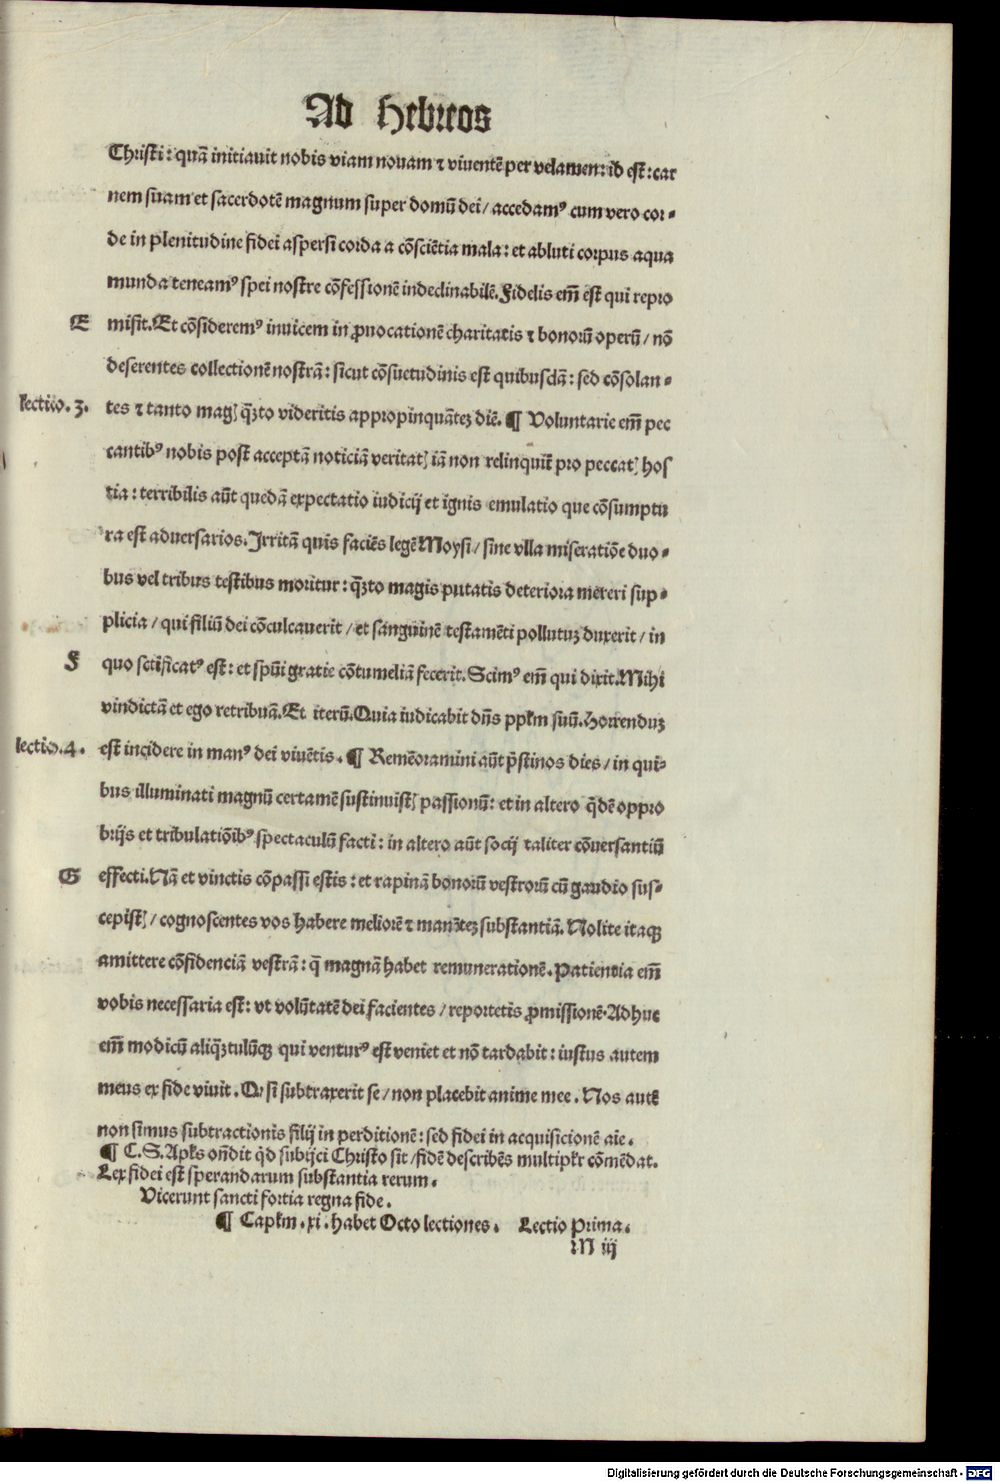 Ad Hebreos
Christi: quā initiauit nobis viam nouam ⁊ viuentē per velamen: id est: car
nem suam et sacerdotē magnum super domū dei/ accedamꝰ cum vero cor-
de in plenitudine fidei aspersi corda a cōsciētia mala: et abluti corpus aqua
munda teneamꝰ spei nostre cōfessionē indeclinabilē. Fidelis em̄ est qui repro
E misit. Et cōsideremꝰ inuicem in ꝓuocationē charitatis ⁊ bonorū operū/ nō
deserentes collectionē nostrā: sicut cōsuetudinis est quibusdā: sed cōsolan-
lectio. 3. tes ⁊ tanto magꝭ q̄ʒto videritis appropinquāteʒ diē. ¶ Voluntarie em̄ pec
cantibꝰ nobis post acceptā noticiā veritatꝭ iā non relinquit̄ pro peccatꝭ hos
tia: terribilis aūt quedā expectatio iudicij et ignis emulatio que cōsumptu
ra est aduersarios. Irritā quis faciēs legē Moysi/ sine vlla miseratiōe duo-
bus vel tribus testibus moritur: q̄ʒto magis putatis deteriora mereri sup-
plicia/ qui filiū dei cōculcauerit/ et sanguinē testamēti pollutuʒ duxerit/ in
F quo sctificatꝰ est: et spūi gratie cōtumeliā fecerit. Scimꝰ em̄ qui dixit. Mihi
vindictā et ego retribuā. Et iterū. Quia iudicabit dn̄s ppl̄m suū. Horrenduʒ
lectio. 4. est incidere in manꝰ dei viuētis. ¶ Remēoramini aūt p̄stinos dies/ in qui-
bus illuminati magnū certamē sustinuistꝭ passionū: et in altero q̄dē oppro
brijs et tribulatiōibꝰ spectaculū facti: in altero aūt socij taliter cōuersantiū
G effecti. Nā et vinctis cōpassi estis: et rapinā bonorū vestrorū cū gaudio sus-
cepistꝭ/ cognoscentes vos habere meliorē ⁊ manēteʒ substantiā. Nolite itaqꝫ
amittere cōfidenciā vestrā: q̄ magnā habet remunerationē. Patientia em̄
vobis necessaria est: vt volūtatē dei facientes/ reportetis ꝓmissionē. Adhuc
em̄ modicū aliq̄ʒtulūcqꝫ qui venturꝰ est veniet et nō tardabit: iustus autem
meus ex fide viuit. Qꝫ si subtraxerit se/ non placebit anime mee. Nos autē
non simus subtractionis filij in perditionē: sed fidei in acquisicionē aīe.
¶ C. S. Apl̄s on̄dit q̄d subijci Christo sit/ fidē describēs multipl̄r cōmēdat.
Lex fidei est sperandarum substantia rerum.
Vicerunt sancti fortia regna fide.
¶ Capl̄m. xi. habet Octo lectiones. Lectio Prima.
M iij
Digitalisierung gefördert durch die Deutsche Forschungsgemeinschaft - DFG